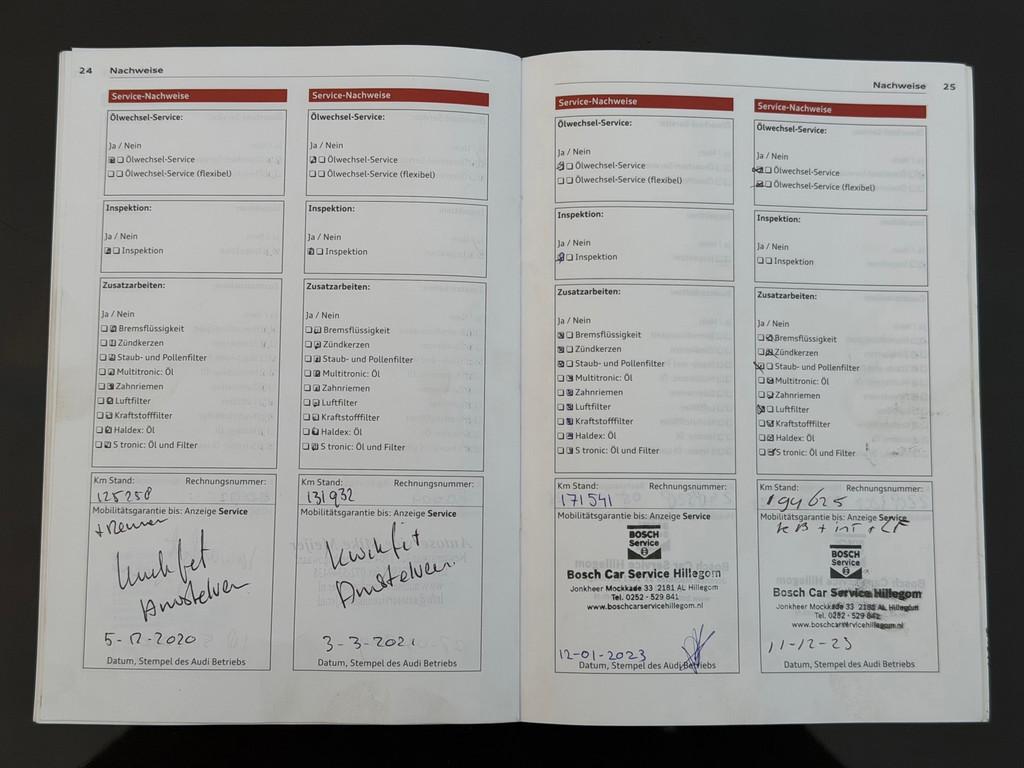 24 Nachweise
Service-Nachweise
Ölwechsel-Service:
Ja / Nein
Ölwechsel-Service
Ölwechsel-Service (flexibel)
Inspektion:
Ja / Nein
Inspektion
Zusatzarbeiten:
Ja / Nein
Bremsflüssigkeit
Zündkerzen
Staub- und Pollenfilter
Multitronic: Öl
Zahnriemen
Luftfilter
Kraftstofffilter
Haldex: Öl
S tronic: Öl und Filter
Km Stand: Rechnungsnummer:
125258
Mobilitätsgarantie bis: Anzeige Service
Kwik fit
Amstelveen
5-12-2020
Datum, Stempel des Audi Betriebs
Service-Nachweise
Ölwechsel-Service:
Ja / Nein
Ölwechsel-Service
Ölwechsel-Service (flexibel)
Inspektion:
Ja / Nein
Inspektion
Zusatzarbeiten:
Ja / Nein
Bremsflüssigkeit
Zündkerzen
Staub- und Pollenfilter
Multitronic: Öl
Zahnriemen
Luftfilter
Kraftstofffilter
Haldex: Öl
S tronic: Öl und Filter
Km Stand: Rechnungsnummer:
131932
Mobilitätsgarantie bis: Anzeige Service
Kwik fit
Amstelveen
3-3-2021
Datum, Stempel des Audi Betriebs
Nachweise 25
Service-Nachweise
Ölwechsel-Service:
Ja / Nein
Ölwechsel-Service
Ölwechsel-Service (flexibel)
Inspektion:
Ja / Nein
Inspektion
Zusatzarbeiten:
Ja / Nein
Bremsflüssigkeit
Zündkerzen
Staub- und Pollenfilter
Multitronic: Öl
Zahnriemen
Luftfilter
Kraftstofffilter
Haldex: Öl
S tronic: Öl und Filter
Km Stand: Rechnungsnummer:
171541
Mobilitätsgarantie bis: Anzeige Service
BOSCH
Service
Bosch Car Service Hillegom
Jonkheer Mockkade 33 2181 AL Hillegom
Tel. 0252 - 529 841
www.boschcarservicehillegom.nl
12-01-2023
Datum, Stempel des Audi Betriebs
Service-Nachweise
Ölwechsel-Service:
Ja / Nein
Ölwechsel-Service
Ölwechsel-Service (flexibel)
Inspektion:
Ja / Nein
Inspektion
Zusatzarbeiten:
Ja / Nein
Bremsflüssigkeit
Zündkerzen
Staub- und Pollenfilter
Multitronic: Öl
Zahnriemen
Luftfilter
Kraftstofffilter
Haldex: Öl
S tronic: Öl und Filter
Km Stand: Rechnungsnummer:
194625
Mobilitätsgarantie bis: Anzeige Service
+ INT + LF
BOSCH
Service
Bosch Car Service Hillegom
Jonkheer Mockkade 33 2181 AL Hillegom
Tel. 0252 - 529 841
www.boschcarservicehillegom.nl
11-12-23
Datum, Stempel des Audi Betriebs